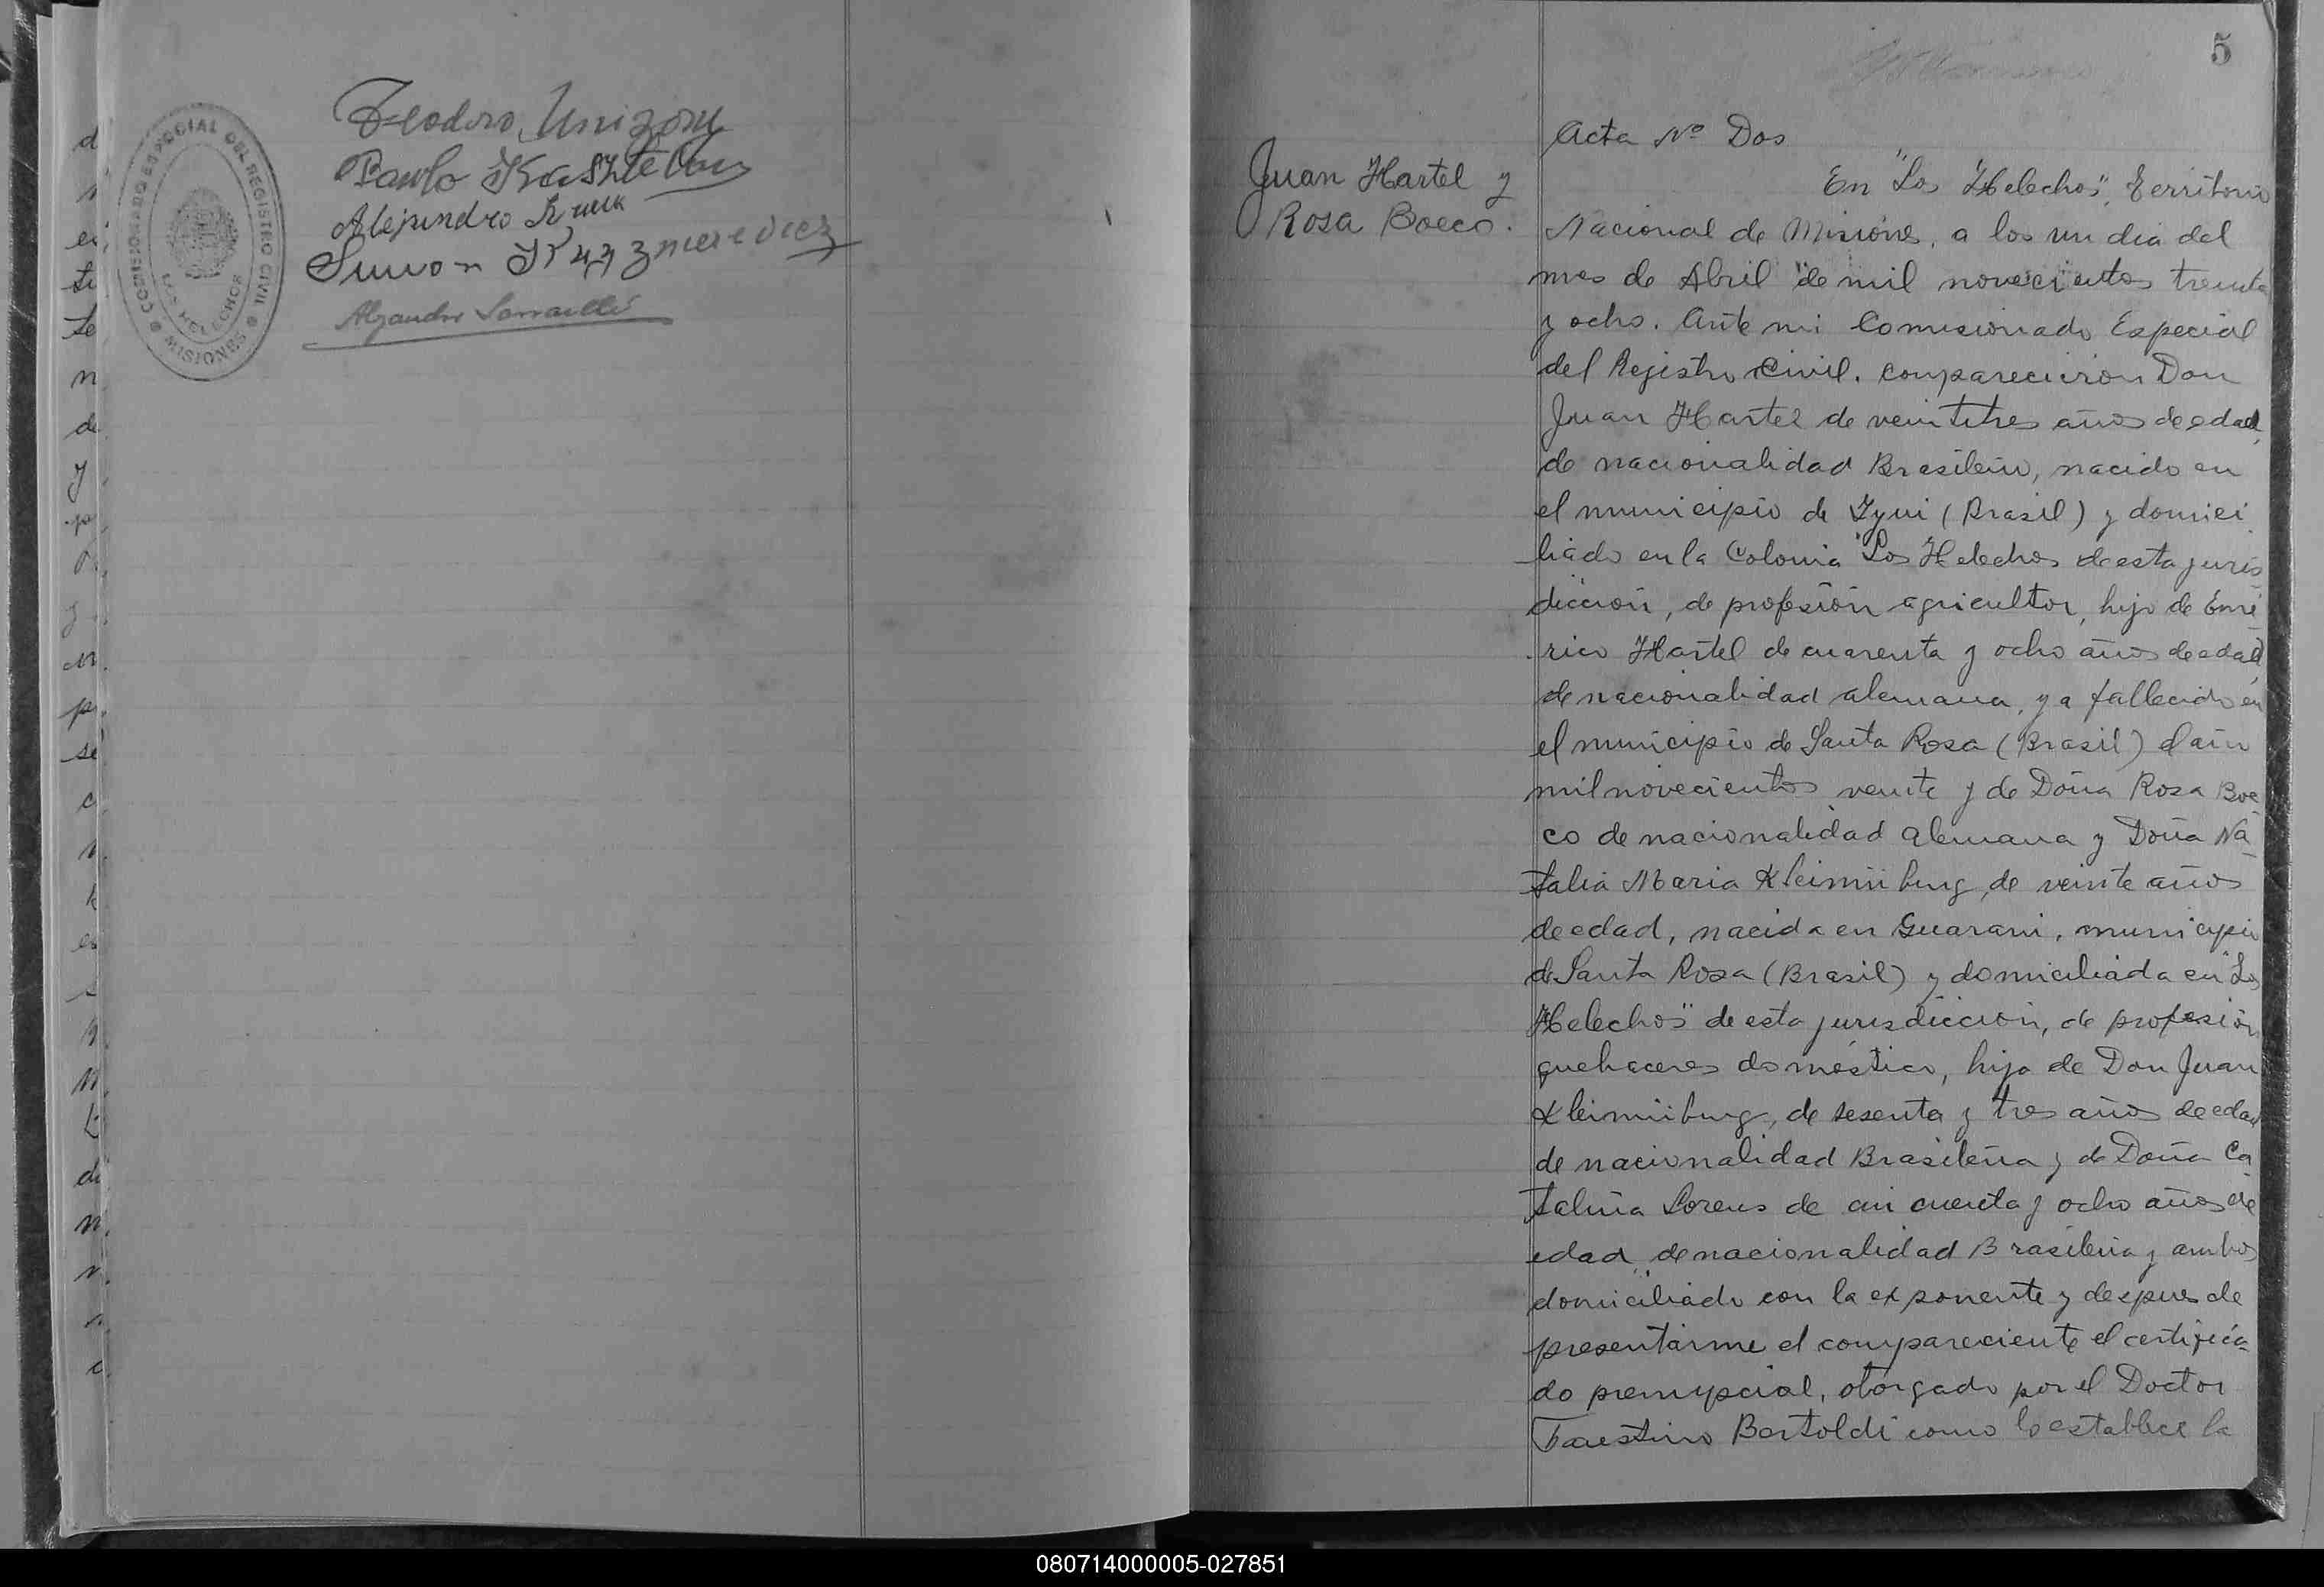 Teodoro
Paulo
Alejandro
Simon
Alejandro
COMISIONADO ESPECIAL DEL REGISTRO CIVIL
LOS HELECHOS
MISIONES
5
Juan Hartel y
Rosa Boeco.
Acta Nº Dos
En "Los Helechos", Territorio
Nacional de Misiones, a los un dia del
mes de Abril de mil novecientos treinta
y ocho. Ante mi Comisionado Especial
del Registro Civil. comparecieron Don
Juan Hartel de veintitres años de edad,
de nacionalidad Brasileño, nacido en
el municipio de Yjui (Brasil) y domici
liado en la Colonia "Los Helechos de esta juris
dicción, de profesión agricultor, hijo de Emé
rico Hartel de cuarenta y ocho años de edad
de nacionalidad alemana, ya fallecido en
el municipio de Santa Rosa (Brasil) el año
mil novecientos veinte y de Doña Rosa Boe
co de nacionalidad alemana y Doña Na
talia Maria Kleimüburg, de veinte años
de edad, nacida en Guarani, municipio
de Santa Rosa (Brasil) y domiciliada en "Los
Helechos" de esta jurisdiccion, de profesión
quehaceres doméstico, hija de Don Juan
Kleimüburg, de sesenta y tres años de edad
de nacionalidad Brasileña y de Doña Ca
talina Lorens de cincuenta y ocho años de
edad, de nacionalidad Brasileña y ambos
domiciliado con la exponente y despues de
presentarme el compareciente el certifica-
do prenupcial, otorgado por el Doctor
Faustino Bertoldi como lo establece la
080714000005-027851